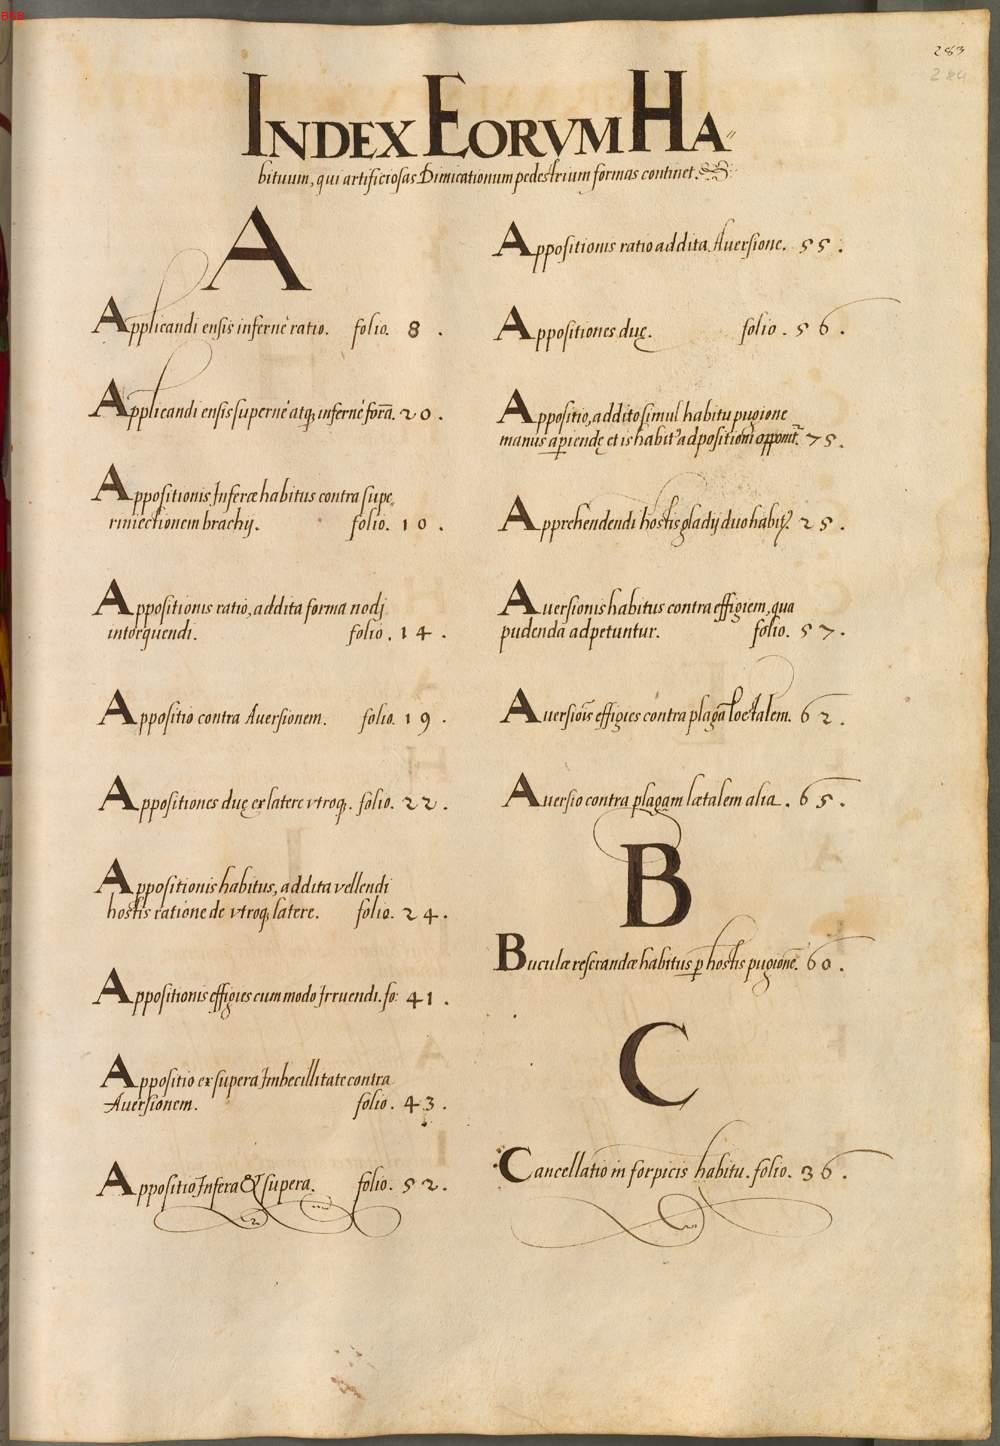 BSB
283
284
INDEX EORVM HA〃
bituum, qui artificiosas Dimicationum pedestrium formas continet.
A
Applicandi ensis infernè ratio. folio. 8 .
Applicandi ensis supernè atq; infernè formā. 20 .
Appositionis Inferæ habitus contra supe,
riniectionem brachij. folio. 10 .
Appositionis ratio, addita forma nodj
intorquendi. folio . 14 .
Appositio contra Auersionem. folio. 19 .
Appositiones duę ex latere vtroq;. folio. 22 .
Appositionis habitus, addita vellendi
hostis ratione de vtroq; latere. folio. 24 .
Appositionis effigies cum modo Irruendi. fo: 41 .
Appositio ex supera Imbecillitate contra
Auersionem. folio . 43 .
Appositio Infera & supera. folio. 52 .
Appositionis ratio addita Auersione. 55 .
Appositiones duę. folio . 56 .
Appositio, addito simul habitu pugione
manus ap̱iendę et is habit᾽ ad positioni opponit᷑. 75 .
Apprehendendi hostis gladij duo habit᾽. 25 .
Auersionis habitus contra effigiem, qua
pudenda adpetuntur. folio. 57 .
Auersiōis effigies contra plagā loetalem. 62 .
Auersio contra plagam lætalem alia . 65 .
B
Buculæ reserandæ habitus p̱ hostis pugionē. 60 .
C
Cancellatio in forpicis habitu. folio. 36 .